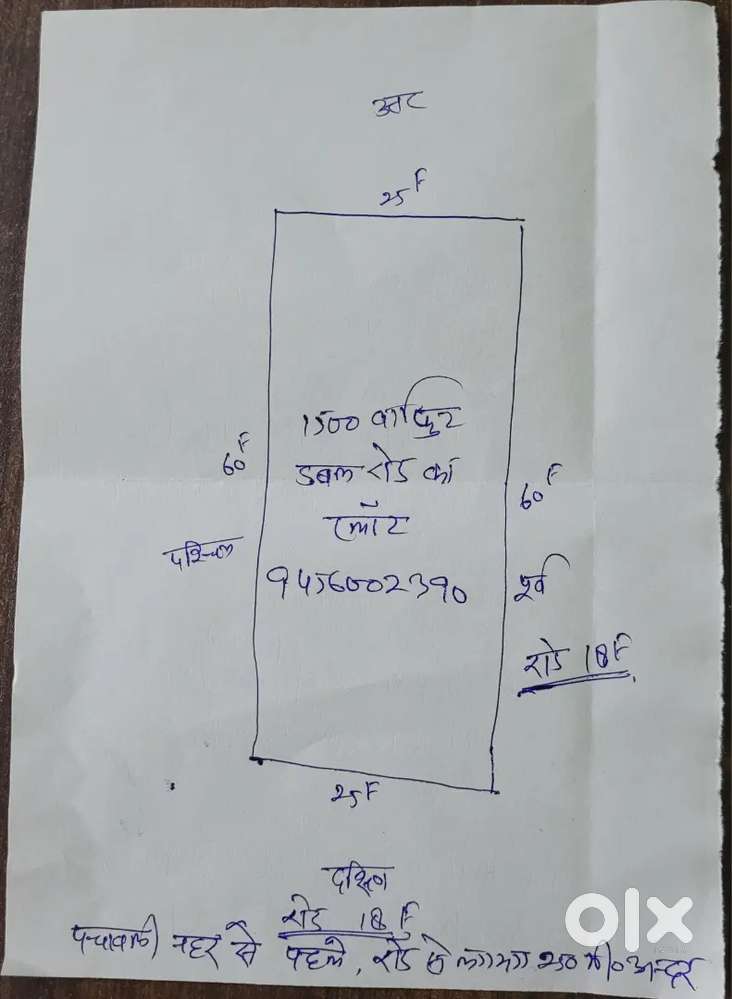 उत्तर
25 F
1500 वर्ग फिट
60 F
डबल रोड का
60 F
प्लॉट
पश्चिम
9456002390
पूर्व
रोड 18 F
25 F
दक्षिण
रोड 18 F
पचावली नहर से पहले, रोड से लगभग 250 मी० अन्दर
olx